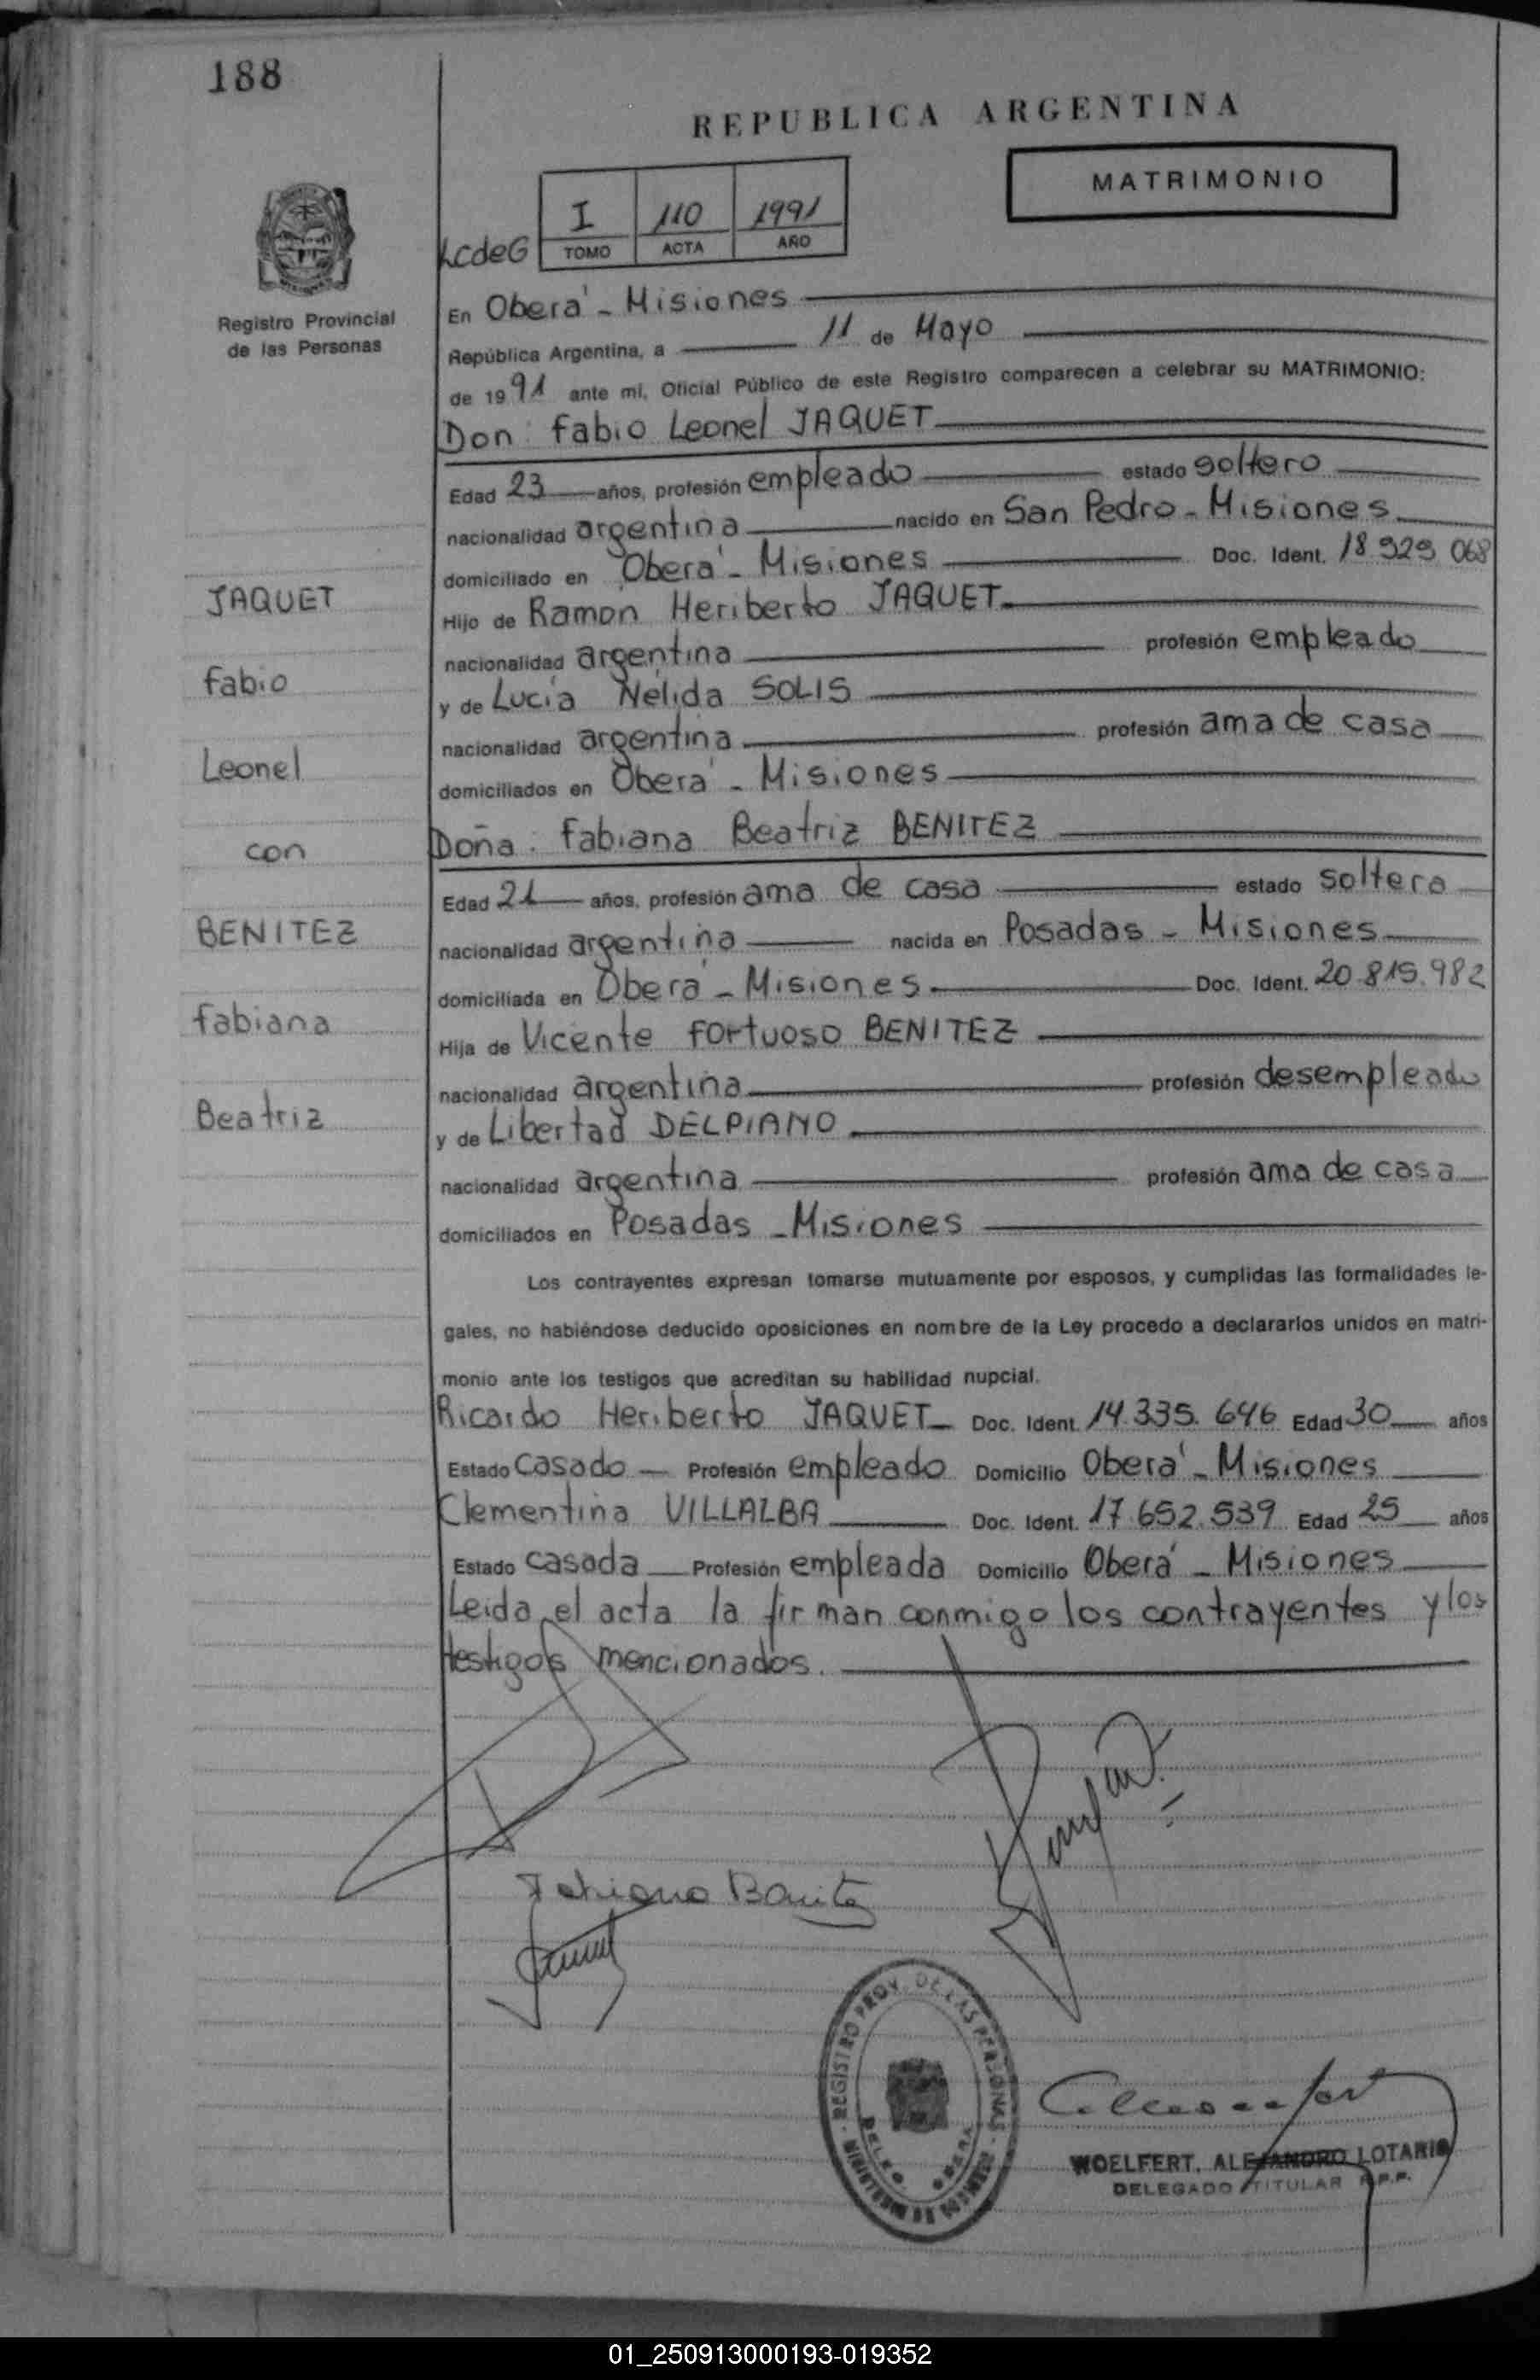 188
REPUBLICA ARGENTINA
MATRIMONIO
I 110 1991
LcdeG TOMO ACTA AÑO
Registro Provincial
de las Personas
En Oberá - Misiones
República Argentina, a 11 de Mayo
de 1991 ante mí, Oficial Público de este Registro comparecen a celebrar su MATRIMONIO:
Don: Fabio Leonel JAQUET
Edad 23 años, profesión empleado estado soltero
nacionalidad argentina nacido en San Pedro - Misiones
domiciliado en Oberá - Misiones Doc. Ident. 18.929.068
Hijo de Ramón Heriberto JAQUET
nacionalidad argentina profesión empleado
y de Lucía Nélida SOLIS
nacionalidad argentina profesión ama de casa
domiciliados en Oberá - Misiones
Doña: Fabiana Beatriz BENITEZ
Edad 21 años, profesión ama de casa estado soltera
nacionalidad argentina nacida en Posadas - Misiones
domiciliada en Oberá - Misiones Doc. Ident. 20.815.982
Hija de Vicente Fortuoso BENITEZ
nacionalidad argentina profesión desempleado
y de Libertad DELPIANO
nacionalidad argentina profesión ama de casa
domiciliados en Posadas - Misiones
JAQUET
Fabio
Leonel
con
BENITEZ
Fabiana
Beatriz
Los contrayentes expresan tomarse mutuamente por esposos, y cumplidas las formalidades le-
gales, no habiéndose deducido oposiciones en nombre de la Ley procedo a declararlos unidos en matri-
monio ante los testigos que acreditan su habilidad nupcial.
Ricardo Heriberto JAQUET Doc. Ident. 14.335.646 Edad 30 años
Estado casado Profesión empleado Domicilio Oberá - Misiones
Clementina VILLALBA Doc. Ident. 17.652.539 Edad 25 años
Estado casada Profesión empleada Domicilio Oberá - Misiones
Leida el acta la firman conmigo los contrayentes y los
testigos mencionados.
REGISTRO PROV. DE LAS PERSONAS
DELEG. OBERA
WOELFERT, ALEJANDRO LOTARIO
DELEGADO TITULAR R.P.P.
01_250913000193-019352